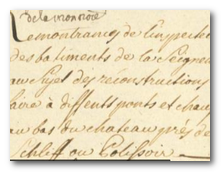 de la mon noté
Remontrance de l'inspecteur
des batiments de la Seigneu
au Sujet des réconstructions
faire à differts ponts et chau
au bas du chateau près de
Schliff ou Polissoir